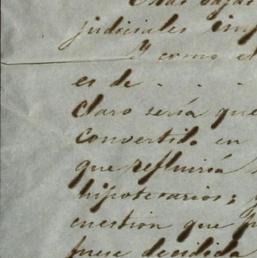 Estas bajas
judiciales imp
Y como el
es de . . . .
claro sería que
convertido en
que refluiría
hipotecarios; y
cuestion que p
fuese decidida